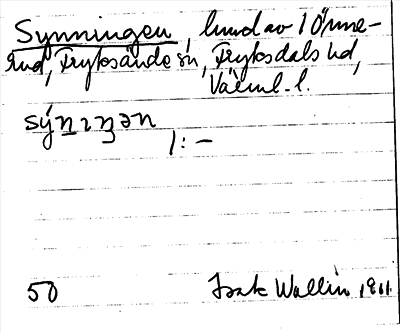 Synningen, lund av 1 Önne-
rud, Fryksände sn, Fryksdals hd,
Värml. l.
sýnıŋən
/: –
50 Isak Wallin 1911